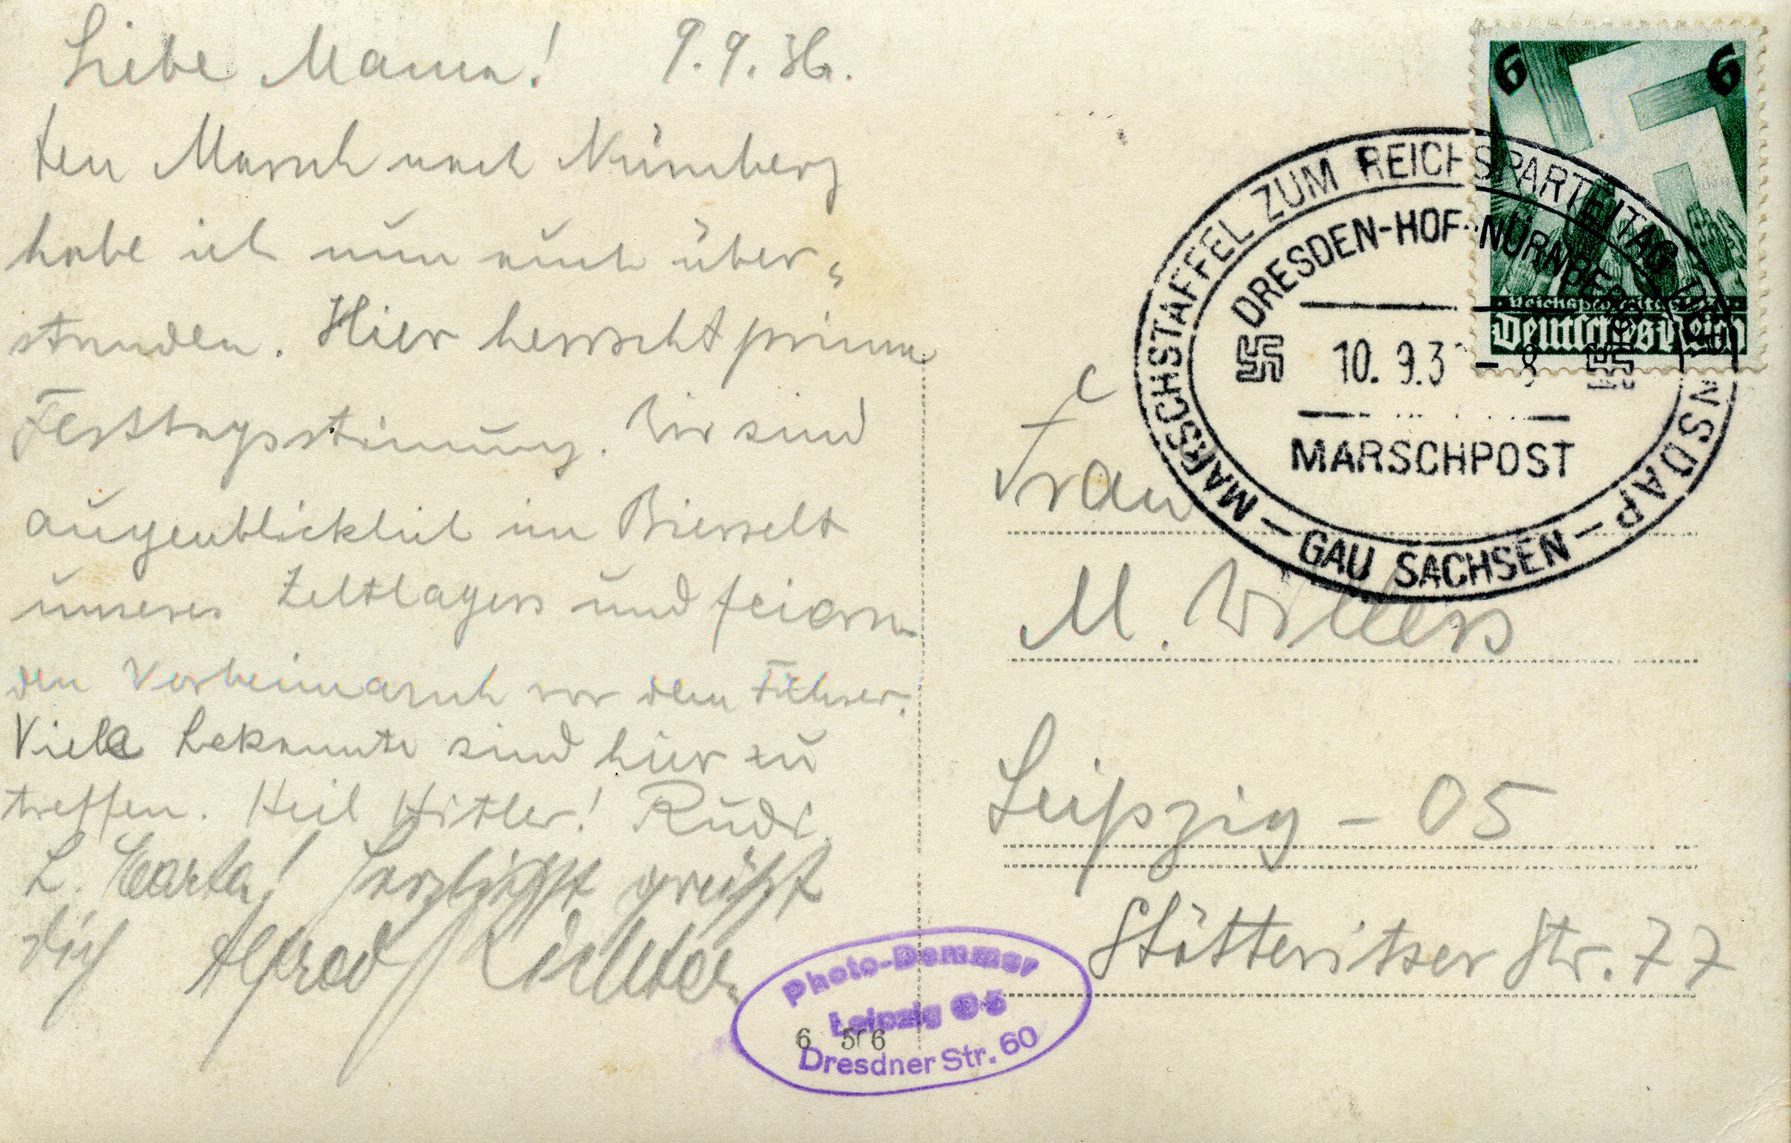 Liebe Mama! 9.9.36.
den Marsch nach Nürnberg
habe ich nun auch über=
standen. Hier herrscht prima
Festtagsstimmung. Wir sind
augenblicklich im Bierzelt
unseres Zeltlagers und feiern
den Vorbeimarsch vor dem Führer.
Viele Bekannte sind hier zu
treffen. Heil Hitler! Rudi.
L. Marta! Herzlichst grüßt
dich Alfred Richter
6
6
Reichsparteitag
Deutsches Reich
MARSCHSTAFFEL ZUM REICHSPARTEITAG DER NSDAP
DRESDEN-HOF-NÜRNBERG
10.9.3 -8
MARSCHPOST
GAU SACHSEN
Frau
M. Willers
Leipzig - O5
Stötteritzer Str. 77
Photo-Demmer
Leipzig O 5
Dresdner Str. 60
6 506